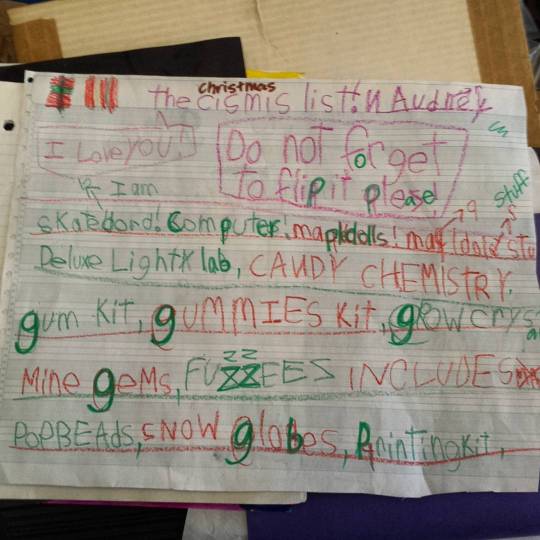 christmas
the cismis list! Audrey
I Love YOU!
Do not forget
to flip it please!
I am
stuff
skatedord! Computer! mapkdolls!
Deluxe Light lab, CANDY CHEMISTRY,
gum Kit, gUMMIES Kit, gROW CRYS
Mine geMs, FUZZEES INCLUDES
POPBEAds, SNOW globes, PrintingKit,